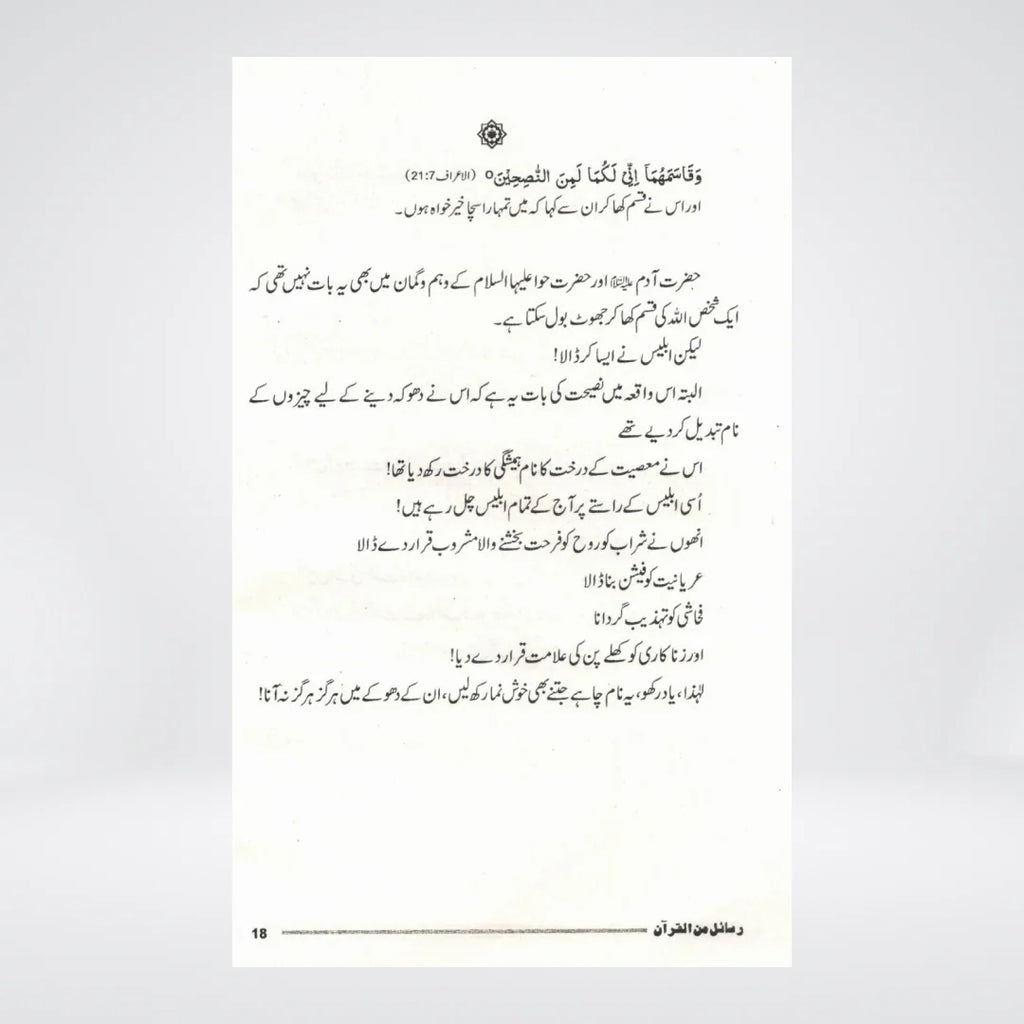 وَقَاسَمَهُمَآ اِنِّیْ لَكُمَا لَمِنَ النّٰصِحِیْنَ ○ (الاعراف 21:7)
اور اس نے قسم کھا کر ان سے کہا کہ میں تمہارا سچا خیر خواہ ہوں۔
حضرت آدم علیہ السلام اور حضرت حوا علیہا السلام کے وہم و گمان میں بھی یہ بات نہیں تھی کہ
ایک شخص اللہ کی قسم کھا کر جھوٹ بول سکتا ہے۔
لیکن ابلیس نے ایسا کر ڈالا!
البتہ اس واقعہ میں نصیحت کی بات یہ ہے کہ اس نے دھوکہ دینے کے لیے چیزوں کے
نام تبدیل کر دیے تھے
اس نے معصیت کے درخت کا نام ہمیشگی کا درخت رکھ دیا تھا!
اُسی ابلیس کے راستے پر آج کے تمام ابلیس چل رہے ہیں!
انھوں نے شراب کو روح کو فرحت بخشنے والا مشروب قرار دے ڈالا
عریانیت کو فیشن بنا ڈالا
فحاشی کو تہذیب گردانا
اور زنا کاری کو کھلے پن کی علامت قرار دے دیا!
لہٰذا، یاد رکھو، یہ نام چاہے جتنے بھی خوش نما رکھ لیں، ان کے دھوکے میں ہرگز ہرگز نہ آنا!
رسائل من القرآن 18